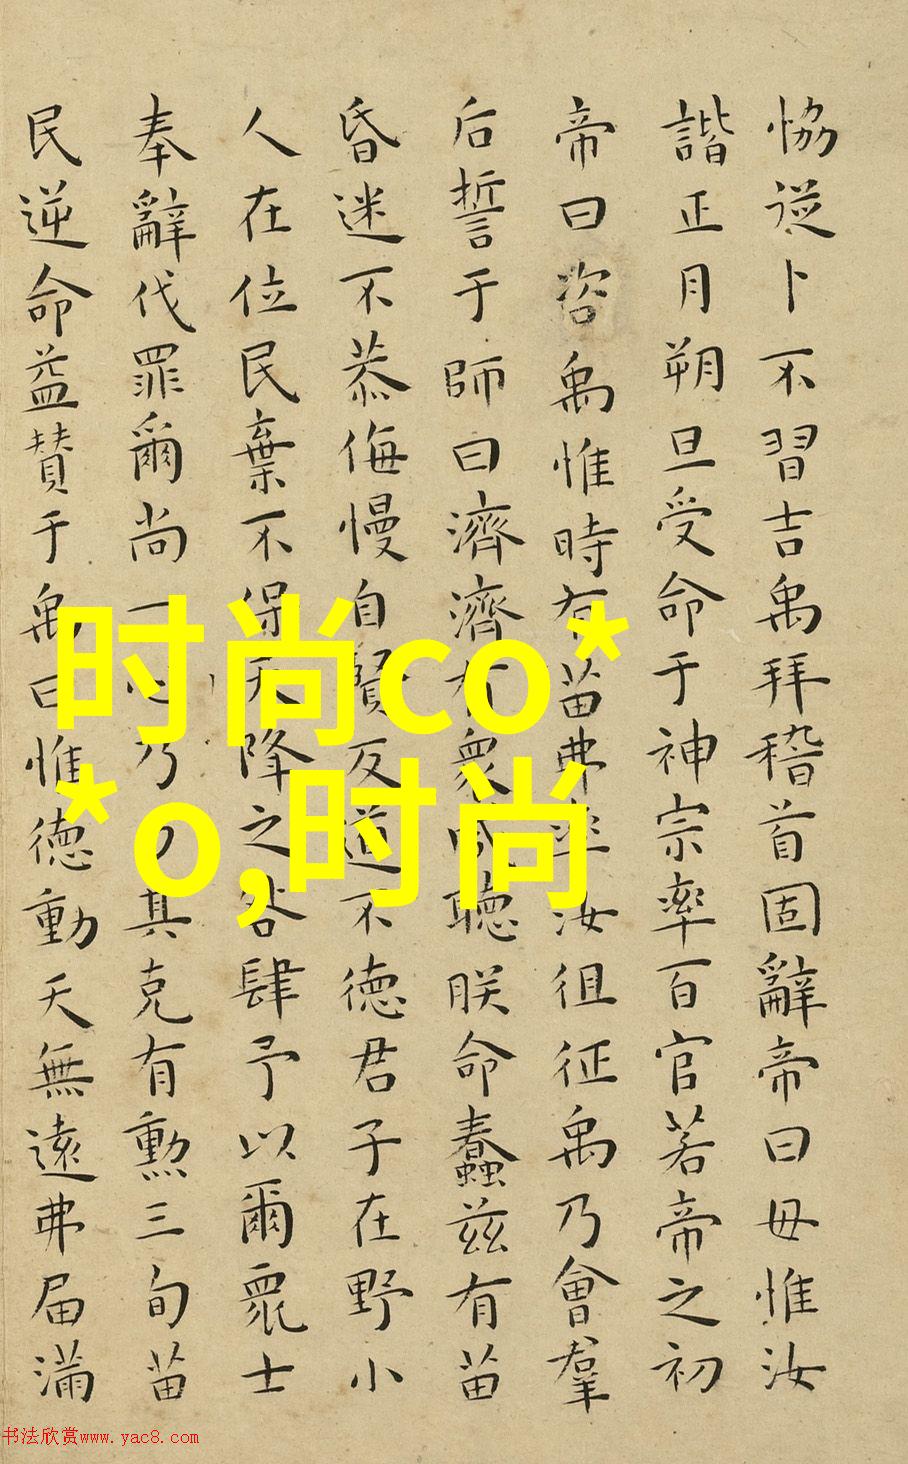 恊從卜不習吉禹拜稽首固辭帝曰毋惟汝
諧正月朔旦受命于神宗率百官若帝之初
帝曰咨禹惟時有苗弗率汝徂征禹乃會羣
后誓于師曰濟濟有衆咸聽朕命蠢兹有苗
昏迷不恭侮慢自賢反道不德君子在野小
人在位民棄不保天降之咎肆予以爾眾士
奉辭伐罪爾尚一心乃力其克有勲三旬苗
民逆命益贊于禹曰惟德動天無遠弗届滿
时尚co*
*o,时尚
书法欣赏www.yac8.com